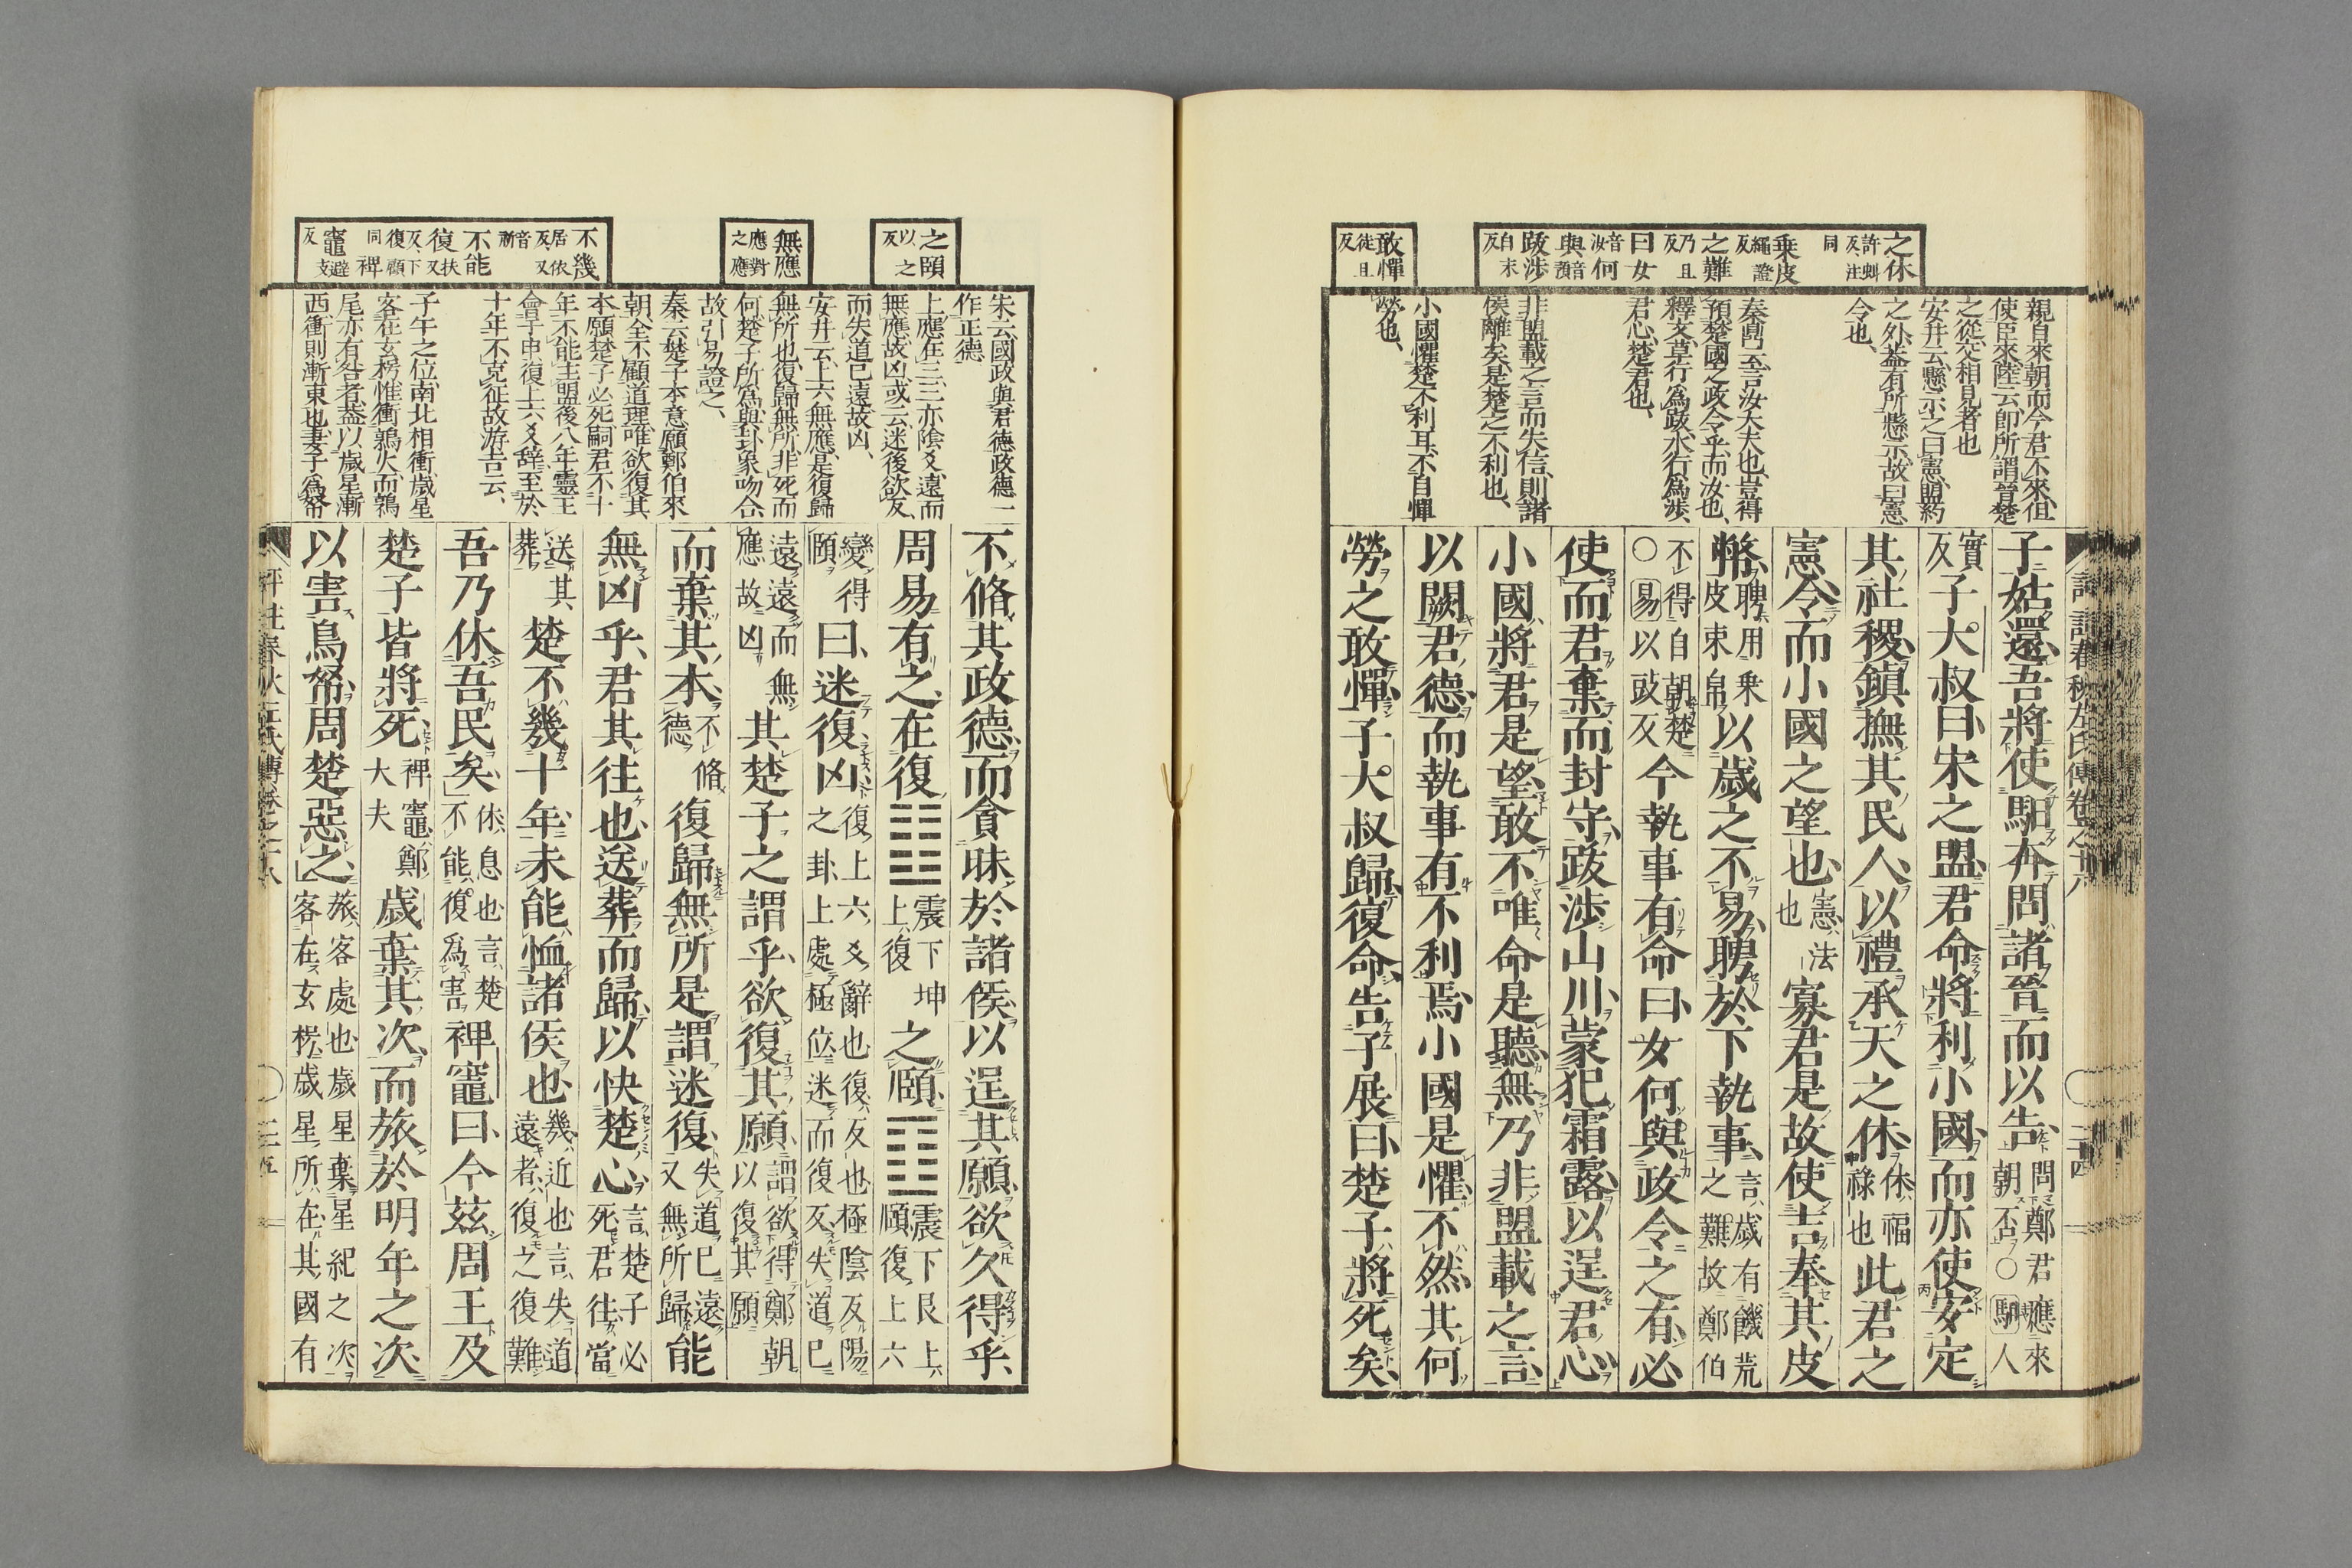 之休 許虯反注同
乗皮 繩證反
之難 乃且反
曰女 音汝
何與 音預
跋渉 白末反
敢憚 徒旦反
親自來朝而今君不來徂
使臣來陸云即所謂晉楚
之從交相見者也
安井云懸示之曰憲盟約
之外葢有所懸示故曰憲
令也、
秦鼎云言汝大夫也豈得
預楚國之政令乎而汝也、
釋文草行爲跋水行爲渉
君心楚君也、
非盟載之言而失信則諸
侯離矣是楚之不利也、
小國懼楚不利耳不自憚
勞也、
子姑還吾將使馹奔問諸晉而以告 問鄭君應來朝否○馹人
實反 子大叔曰宋之盟君命將利小國而亦使安定
其社稷鎮撫其民人以禮承天之休 休福祿也 此君之
憲令而小國之望也 憲法也 寡君是故使吉奉其皮
幣 聘用乘皮束帛 以歳之不易聘於下執事 言歳有饑荒之難故鄭伯
不得自朝楚○易以豉反 今執事有命曰女何與政令之有必
使而君棄而封守跋渉山川蒙犯霜露以逞君心
小國將君是望敢不唯命是聽無乃非盟載之言
以闕君德而執事有不利焉小國是懼不然其何
勞之敢憚子大叔歸復命告子展曰楚子將死矣
二十四
之頤 以之反
無應 應對之應
不幾 居依反又音祈
不能復 扶又反下復顧同
裨竈 避支反
朱云國政與君德政德二
作正德
上應在三三亦陰爻遠而
無應故凶或云迷後欲反
而失道已遠故凶、
安井云上六無應是復歸
無所也復歸無所非死而
何楚子所爲與卦象吻合
故引易證之、
秦云楚子本意願鄭伯來
朝全不顧道理唯欲復其
本願楚子必死嗣君不十
年不能主盟後八年靈王
會于申復上六爻辞至於
十年不克征故游吉云、
子午之位南北相衝歳星
客在玄枵惟衝鶉火而鶉
尾亦有咎者葢以歳星漸
西衝則漸東也妻子爲帑
不脩其政德而貪昧於諸侯以逞其願欲久得乎
周易有之在復䷗ 震下坤上復 之頤䷚ 震下艮上頤復上六
變得頤 曰迷復凶 復上六爻辭也復反也極陰反陽之卦上處極位迷而復反失道已
遠遠而無應故凶 其楚子之謂乎欲復其願 謂欲得鄭朝以復其願
而棄其本 不脩德 復歸無所是謂迷復 失道已遠又無所歸 能
無凶乎君其往也送葬而歸以快楚心 言楚子必死君往當
送其葬 楚不幾十年未能恤諸侯也 幾近也言失道遠者復之復難
吾乃休吾民矣 休息也言楚不能復爲害 裨竈曰今茲周王及
楚子皆將死 裨竈鄭大夫 歳棄其次而旅於明年之次
以害鳥帑周楚惡之 旅客處也歳星棄星紀之次客在玄枵歳星所在其國有